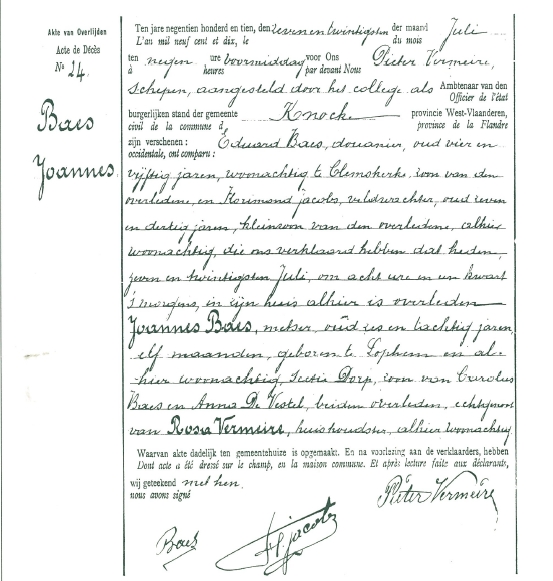 Akte van Overlijden
Acte de Décès
No 24.
Baes
Joannes
Ten jare negentien honderd en tien, den zeven en twintigsten der maand Juli
L'an mil neuf cent et dix, le du mois
ten negen ure voormiddag voor Ons Pieter Vermeire,
à heures par devant Nous
Schepen, aangesteld door het college als Ambtenaar van den
Officier de l'état
burgerlijken stand der gemeente Knocke provincie West-Vlaanderen,
civil de la commune d province de la Flandre
zijn verschenen : Eduard Baes, douanier, oud vier en
occidentale, ont comparu :
vijftig jaren, woonachtig te Clemskerke, zoon van den
overledene, en jacobs, veldwachter, oud zeven
en dertig jaren, kleinzoon van den overledene, alhier
woonachtig, die ons verklaard hebben dat heden,
zeven en twintigsten Juli, om acht ure en een kwart
's morgens, in zijn huis alhier is overleden
Joannes Baes, metser, oud zes en tachtig jaren,
elf maanden, geboren te Lophem en al-
hier woonachtig, Sectie Dorp, zoon van Carolus
Baes en Anna De Vestel, beiden overleden, echtgenoot
van Rosa Vermeire, huishoudster, alhier woonachtig
Waarvan akte dadelijk ten gemeentehuize is opgemaakt. En na voorlezing aan de verklaarders, hebben
Dont acte a été dressé sur le champ, en la maison commune. Et après lecture faite aux déclarants,
wij geteekend met hen.
nous avons signé
Pieter Vermeire
Baes
jacobs